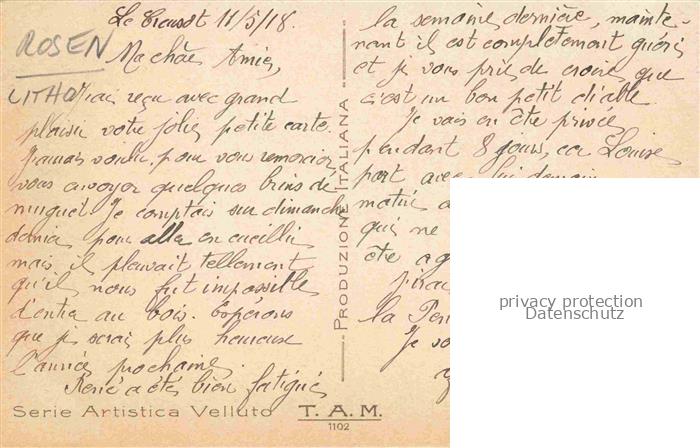 Le Creusot 11/5/18.
ROSEN
Ma chère Amie,
LITHO
J'ai reçu avec grand
plaisir votre jolie petite carte.
J'aurais voulu, pour vous remercier,
vous envoyer quelques brins de
muguet. Je comptais sur dimanche
dernier pour aller en cueillir
mais il pleuvait tellement
qu'il nous fut impossible
d'entrer au bois. Espérons
que je serai plus heureuse
l'année prochaine.
René a été bien fatigué
la semaine dernière, mainte-
nant il est complètement guéri
et je vous prie de croire que
c'est un bon petit diable.
Je vais en être privée
pendant 8 jours, car Louise
part avec lui demain
matin
qui ne
être
la
Je
PRODUZIONE ITALIANA
Serie Artistica Velluto T. A. M.
1102
privacy protection
Datenschutz